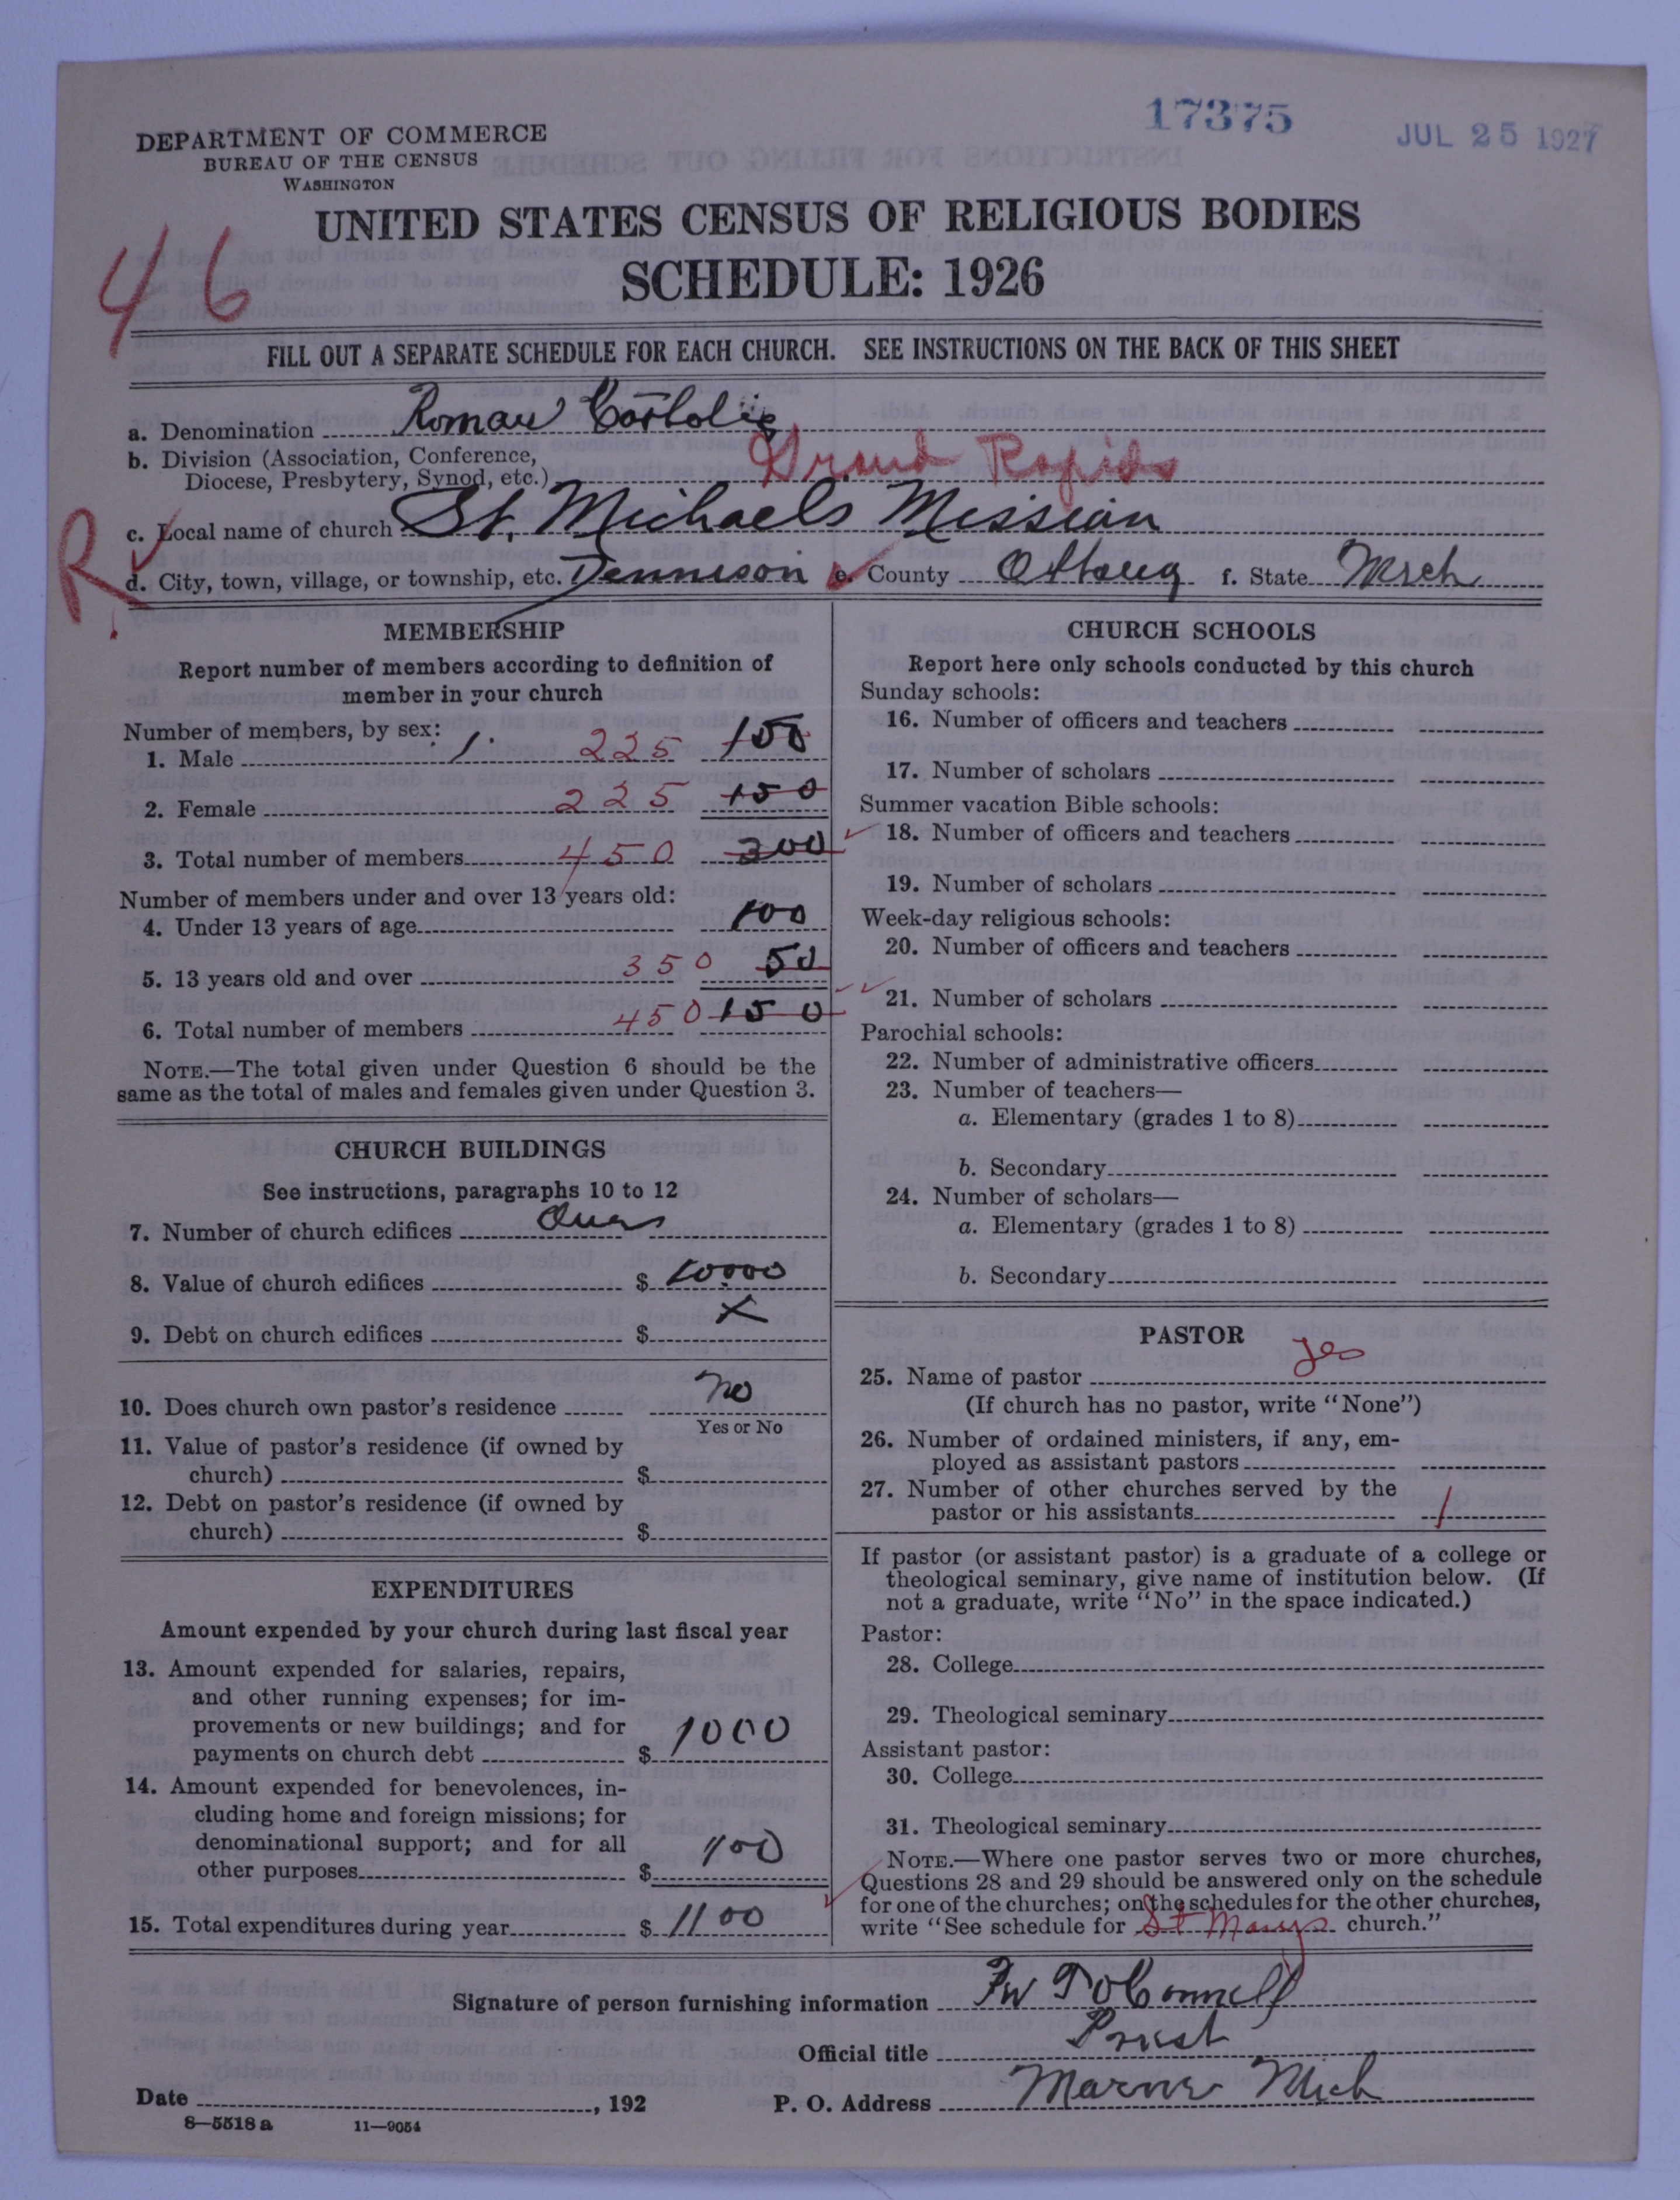 17375
JUL 25 1927
DEPARTMENT OF COMMERCE
BUREAU OF THE CENSUS
WASHINGTON
UNITED STATES CENSUS OF RELIGIOUS BODIES
SCHEDULE: 1926
46
FILL OUT A SEPARATE SCHEDULE FOR EACH CHURCH. SEE INSTRUCTIONS ON THE BACK OF THIS SHEET
a. Denomination Roman Catholic
b. Division (Association, Conference,
Diocese, Presbytery, Synod, etc.) Grand Rapids
R
c. Local name of church St. Michaels Mission
d. City, town, village, or township, etc. Dennison e. County Ottawa f. State Mich
MEMBERSHIP
Report number of members according to definition of
member in your church
Number of members, by sex:
1. Male 225 150
2. Female 225 150
3. Total number of members 450 300
Number of members under and over 13 years old:
4. Under 13 years of age 100
5. 13 years old and over 350 50
6. Total number of members 450 150
NOTE.—The total given under Question 6 should be the
same as the total of males and females given under Question 3.
CHURCH BUILDINGS
See instructions, paragraphs 10 to 12
7. Number of church edifices
8. Value of church edifices $ 10000
9. Debt on church edifices $ X
10. Does church own pastor's residence No
Yes or No
11. Value of pastor's residence (if owned by
church) $
12. Debt on pastor's residence (if owned by
church) $
EXPENDITURES
Amount expended by your church during last fiscal year
13. Amount expended for salaries, repairs,
and other running expenses; for im-
provements or new buildings; and for
payments on church debt $ 1000
14. Amount expended for benevolences, in-
cluding home and foreign missions; for
denominational support; and for all
other purposes $ 100
15. Total expenditures during year $ 1100
CHURCH SCHOOLS
Report here only schools conducted by this church
Sunday schools:
16. Number of officers and teachers
17. Number of scholars
Summer vacation Bible schools:
18. Number of officers and teachers
19. Number of scholars
Week-day religious schools:
20. Number of officers and teachers
21. Number of scholars
Parochial schools:
22. Number of administrative officers
23. Number of teachers—
a. Elementary (grades 1 to 8)
b. Secondary
24. Number of scholars—
a. Elementary (grades 1 to 8)
b. Secondary
PASTOR
25. Name of pastor yes
(If church has no pastor, write "None")
26. Number of ordained ministers, if any, em-
ployed as assistant pastors
27. Number of other churches served by the
pastor or his assistants 1
If pastor (or assistant pastor) is a graduate of a college or
theological seminary, give name of institution below. (If
not a graduate, write "No" in the space indicated.)
Pastor:
28. College
29. Theological seminary
Assistant pastor:
30. College
31. Theological seminary
NOTE.—Where one pastor serves two or more churches,
Questions 28 and 29 should be answered only on the schedule
for one of the churches; on the schedules for the other churches,
write "See schedule for St Marys church."
Signature of person furnishing information O'Connell
Official title Priest
Date , 192 P. O. Address Marne Mich
8—5518 a 11—9054